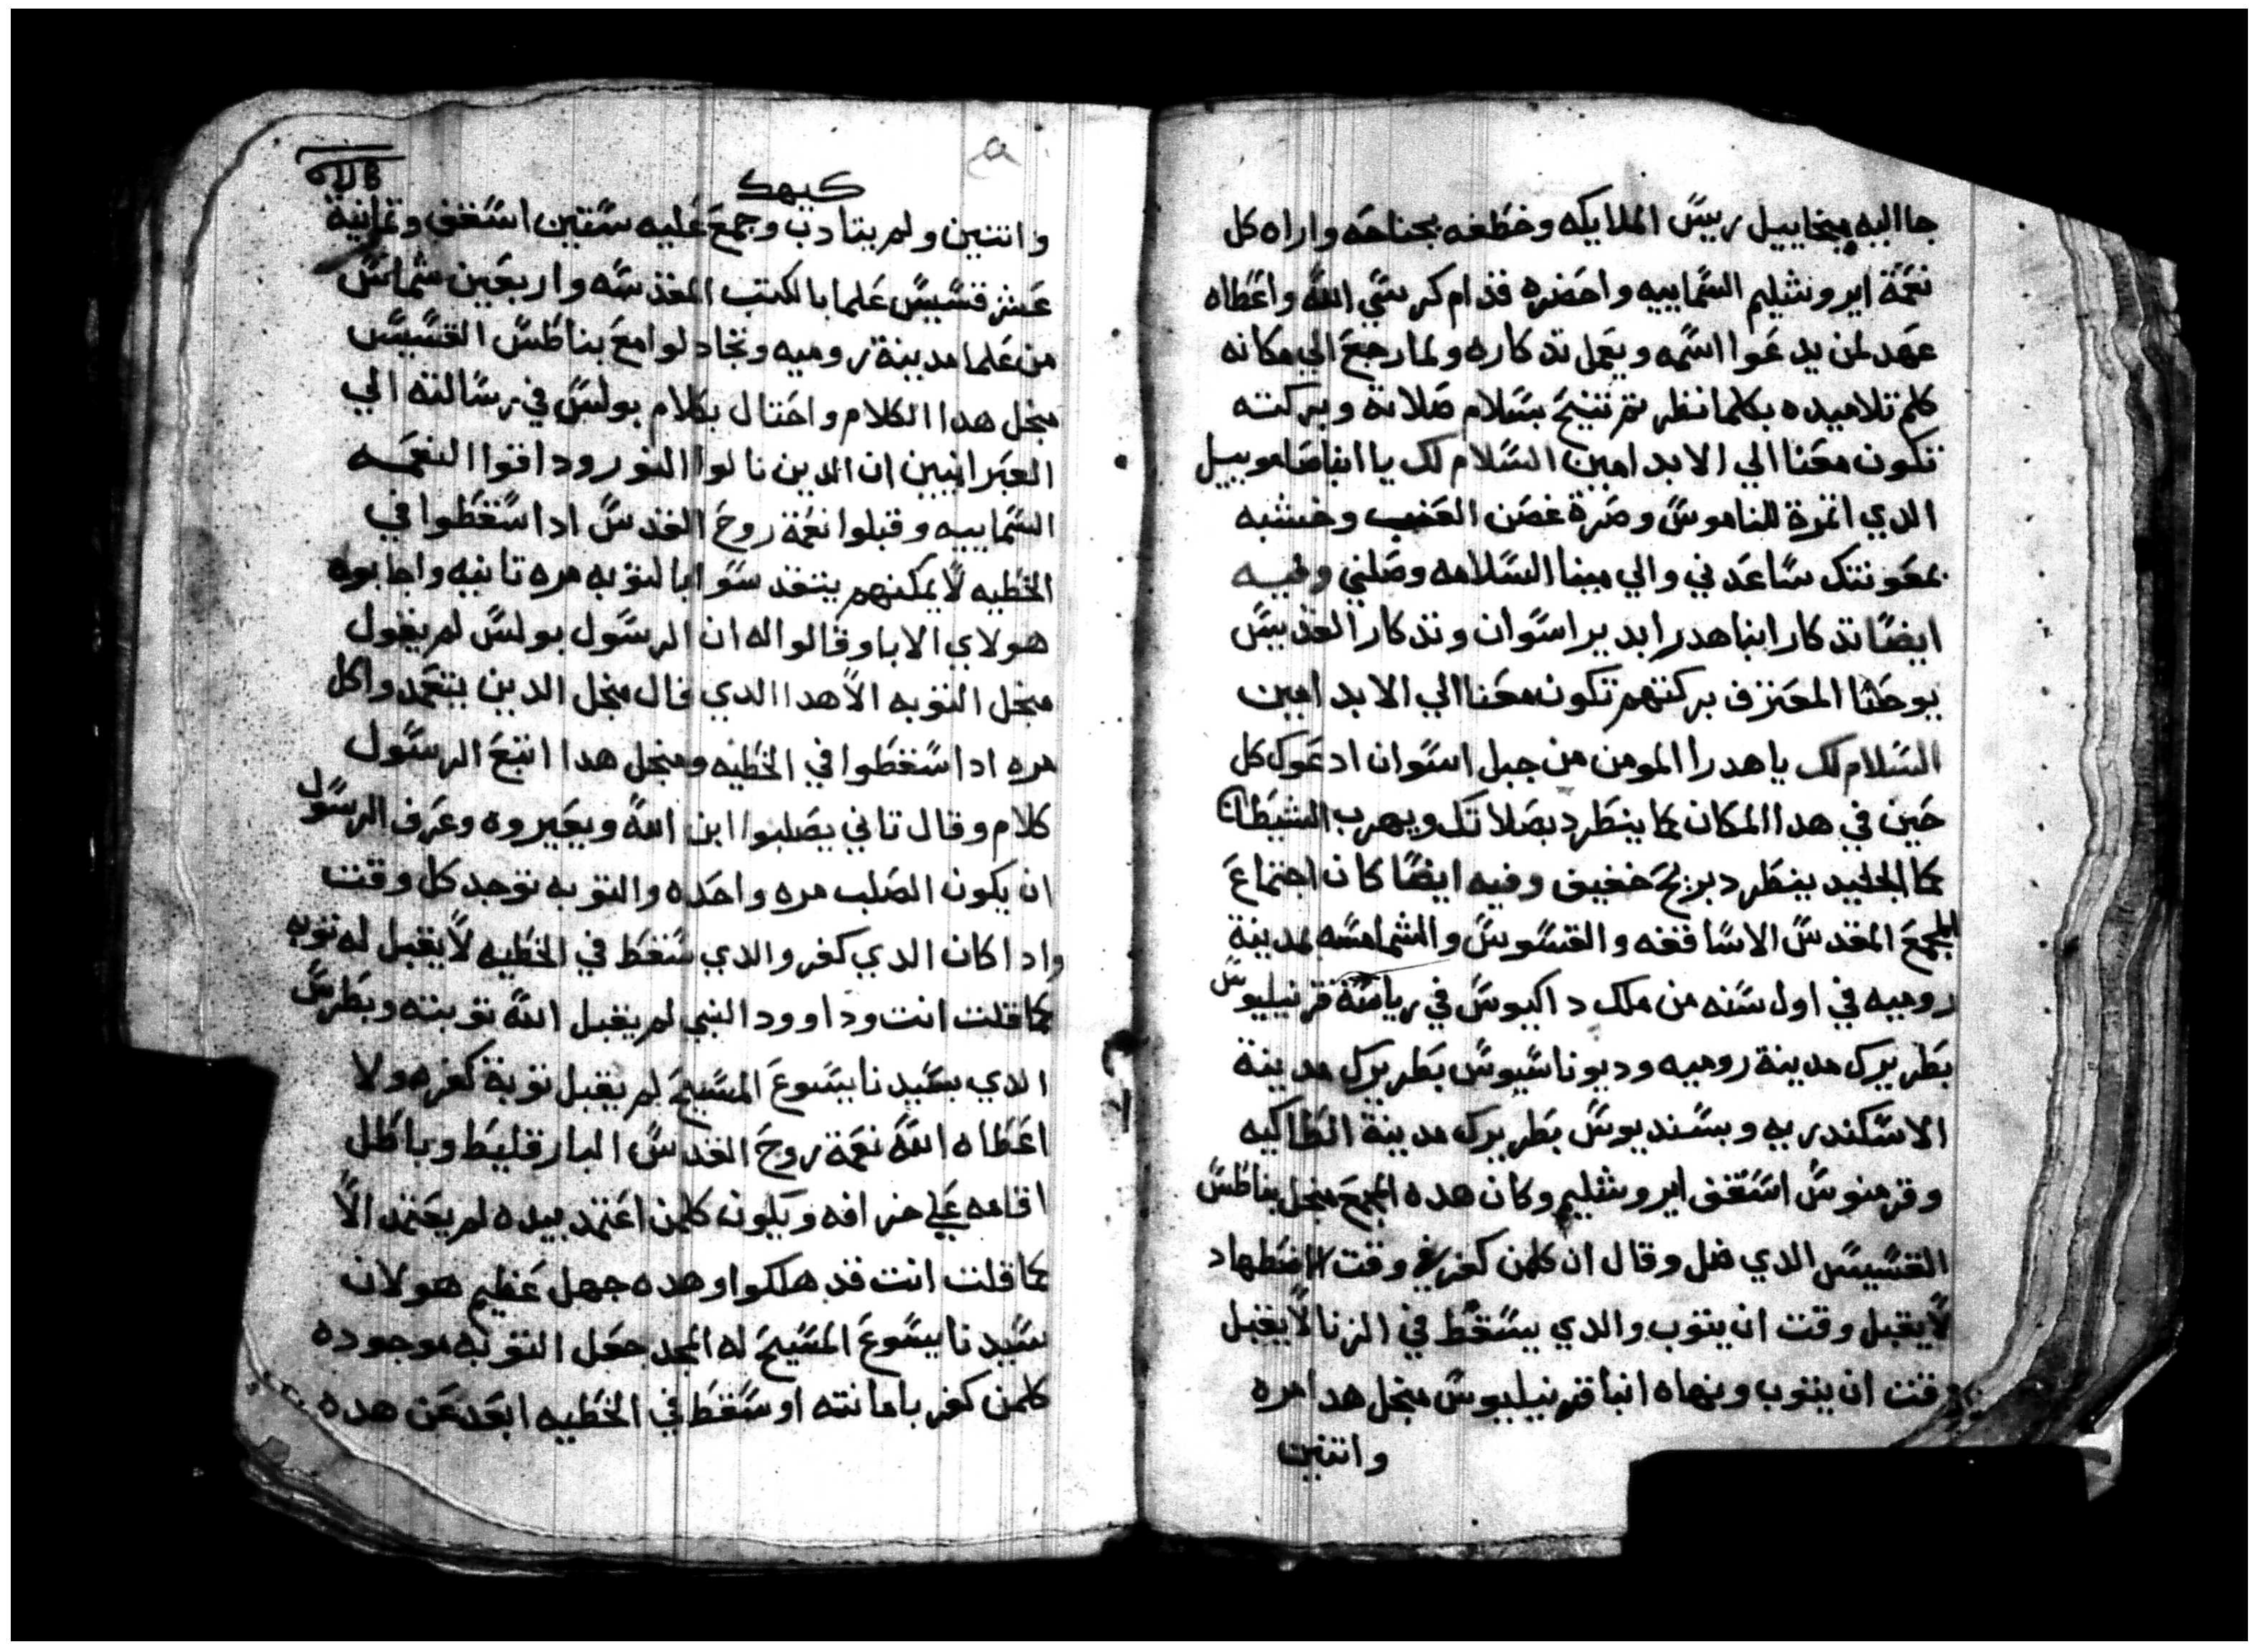 جا اليه ميخاييل رييس الملايكه وخطفه بجناحه واراه كل
نعمة ايروشليم السماييه واحضره قدام كرسي الله واعطاه
عهد لمن يدعوا اسمه ويعمل تدكاره ولما رجع الي مكانه
كلم تلاميده بكلما نظر تم تنيح بسلام صلاته وبركته
تكون معنا الي الابد امين السلام لك يا ابنا صامويل
الدي اتمرة للناموس وصرة غصن العنب وخشبه
بمعونتك ساعدني والي مينا السلامه وصلني وفيه
ايضا تدكار ابنا هدرا بدير اسوان وتدكار القديس
يوحنا المعترف بركتهم تكون معنا الي الابد امين
السلام لك يا هدرا المومن من جبل اسوان ادعوك كل
حين في هدا المكان كما ينطرد بصلاتك ويهرب الشيطان
كما الجليد ينطرد بريح خفيف وفيه ايضا كان اجتماع
المجمع المقدس الاساقفه والقسوس والشمامسه بمدينة
روميه في اول سنه من ملك داكيوس في رياسة قرنيليوس
بطريرك مدينة روميه وديوناسيوس بطريرك مدينة
الاسكندريه وبسنديوس بطريرك مدينة انطاكيه
وقرمنوس اسقف ايروشليم وكان هده المجمع منجل بناطس
القسيس الدي ضل وقال ان كلمن كفر في وقت الاضطهاد
لا يقبل وقت ان يتوب والدي يسقط في الزنا لا يقبل
وقت ان يتوب وينهاه انبا قرنيليوس منجل هدا مره
واتنين
كيهك
واتنين ولم يتادب وجمع عليه ستين اسقف وتمانية
عشر قسيس علما بالكتب المقدسه واربعين شماس
من علما مدينة روميه وتجادلوا مع بناطس القسيس
منجل هدا الكلام واحتال بكلام بولس في رسالته الي
العبرانيين ان الدين نالوا النور وداقوا النعمه
السماييه وقبلوا نعمة روح القدس ادا سقطوا في
الخطيه لا يمكنهم يتقدسوا بالتوبه مره تانيه واجابوه
هولاي الابا وقالوا له ان الرسول بولس لم يقول
منجل التوبه الا هدا الدي قال منجل الدين يتعمد واكل
مره ادا سقطوا في الخطيه ومنجل هدا اتبع الرسول
كلام وقال تاني يصلبوا ابن الله ويعيروه وعرف الرسول
ان يكون الصلب مره واحده والتوبه توجد كل وقت
وادا كان الدي كفر والدي سقط في الخطيه لا يقبل له توبه
كما قلت انت وداوود النبي لم يقبل الله توبته وبطرس
الدي بسيدنا يسوع المسيح لم يقبل توبة كفره ولا
اعطاه الله نعمة روح القدس البارقليط وباطل
اقامه علي خرافه ويكون كلمن اعتمد بيده لم يعتمد الا
كما قلت انت قد هلكوا وهده جهل عظيم هو لان
سيدنا يسوع المسيح له المجد جعل التوبه موجوده
كلمن كفر بامانته او سقط في الخطيه ابعد عن هده